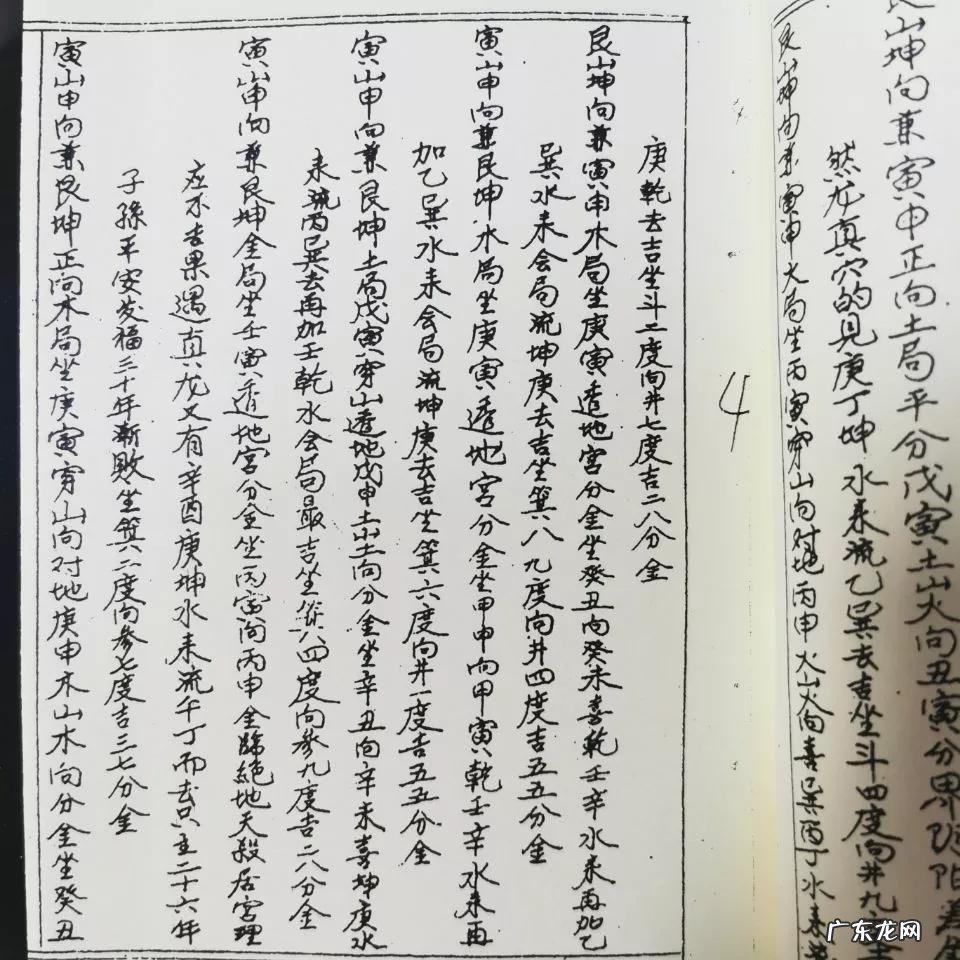 艮山坤向兼寅申正向土局平分戊寅土山火向丑寅分界
然龙真穴的见庚丁坤水来流乙巽去吉坐斗四度向井九
艮山坤向兼寅申火局坐丙寅穿山向对地丙申火山火向喜巽酉丁水来
4
庚乾去吉坐斗二度向井七度吉二八分金
艮山坤向兼寅申木局坐庚寅透地宫分金坐癸丑向癸未喜乾壬辛水来再加乙
巽水来会局流坤庚去吉坐箕八九度向井四度吉五五分金
寅山申向兼艮坤水局坐庚寅透地宫分金坐甲申向甲寅乾壬辛水来再
加乙巽水来会局流坤庚去吉坐箕六度向井一度吉五五分金
寅山申向兼艮坤土局戊寅穿山透地戊申土山土向分金坐辛丑向辛未喜坤庚水
来流丙巽去再加壬乾水会局最吉坐箕八四度向参九度吉二八分金
寅山申向兼艮坤金局坐壬寅透地宫分金坐丙寅向丙申金临绝地天殺居宫理
应不吉果遇真龙又有辛酉庚坤水来流午丁而去只主二十六年
子孫平安发福三十年漸敗坐箕二度向参七度吉三七分金
寅山申向兼艮坤正向木局坐庚寅穿山向对地庚申木山木向分金坐癸丑
广东龙网